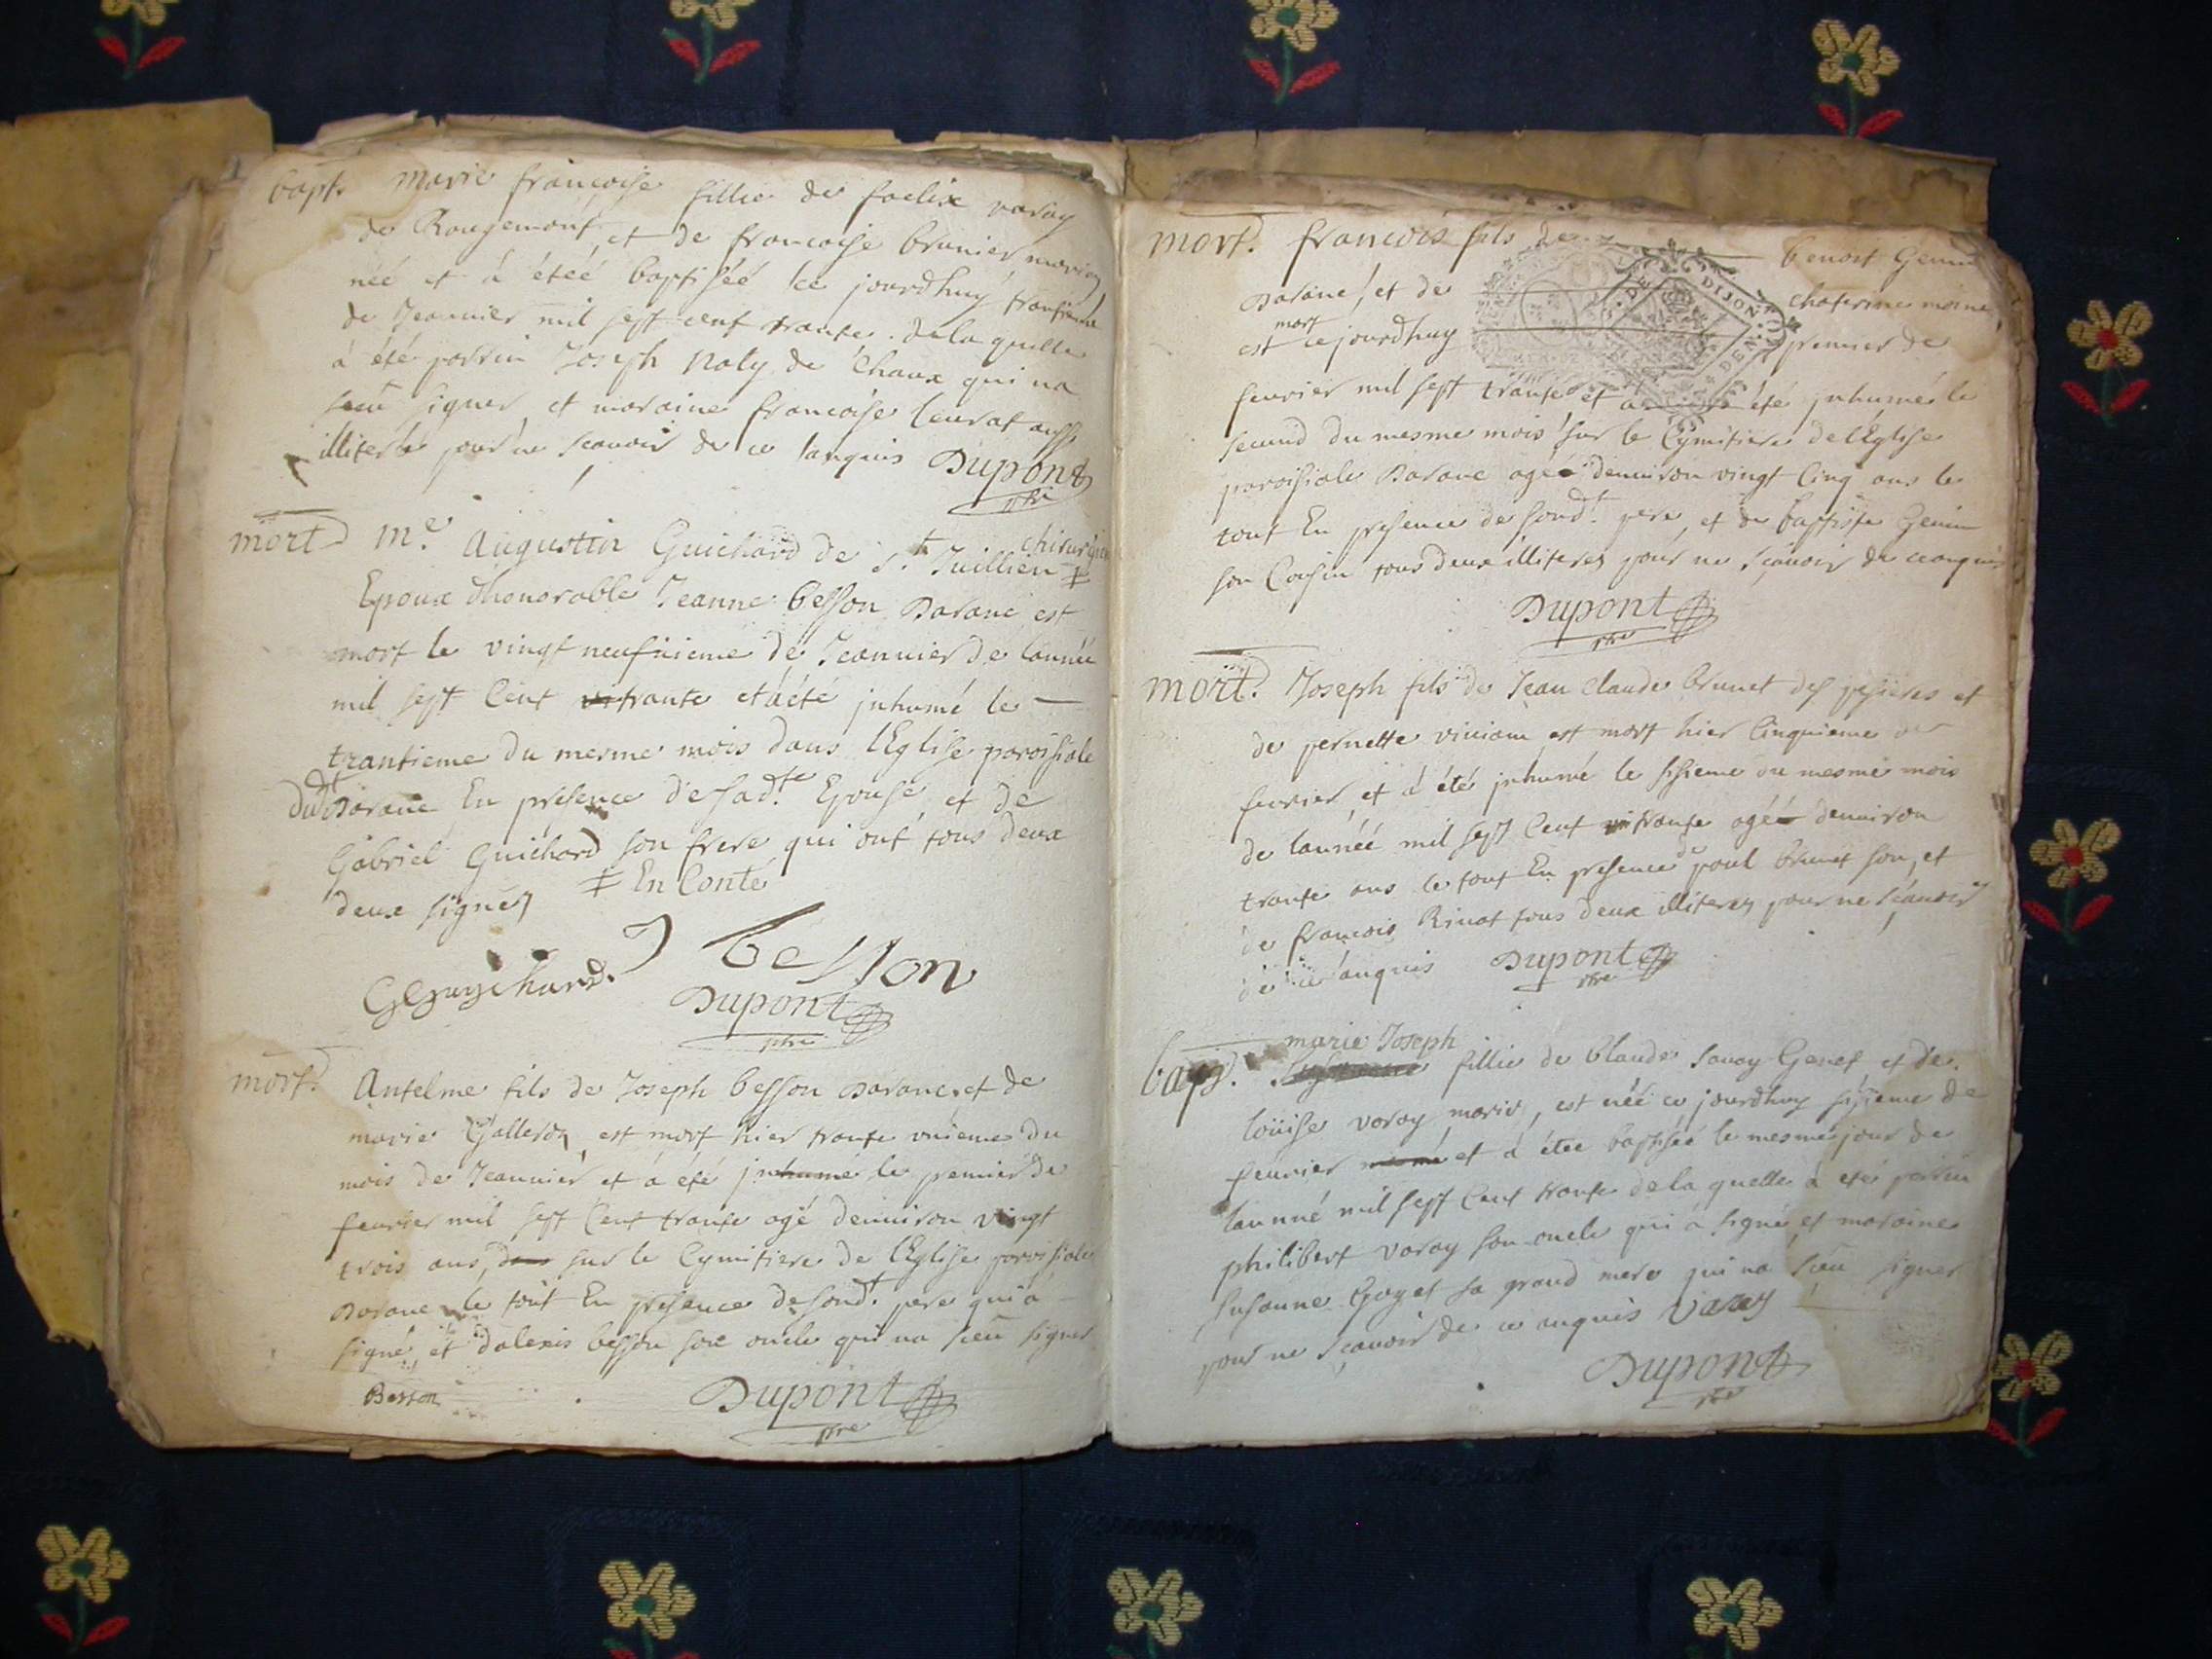 bapt. marie françoise fillie de faelix varay
de Rougemont, et de francoise brunier mariez
néé et à étéé baptiséé ce jourdhuy trantieme
de Jeanvier mil sept cent trante. de la quelle
à été parrin Joseph Naly de Chaux qui na
sceu signer et maraine francoise leurat aussi
illiterée pour ne scavoir de ce lanquis Dupont
ptre
mort Me. Augustin Guichard de St. Juillien ǂ chirurgien
Epoux dhonorable Jeanne besson Darane est
mort le vingt neufvieme de Jeanvier de lannéé
mil sept Cent trante et à été jnhumé le
trantieme du mesme mois dans lEglise paroissiale
dudt Darane En presence de sadte. Epouse et de
Gabriel Guichard son frere qui ont tous deux
deux signez ǂ En Conté
GGuychard. besson
Dupont
ptre
mort. Antelme fils de Joseph besson Darane, et de
marie Galleron est mort hier trante unieme du
mois de Jeanvier et à été jnhumé le premier de
fevrier mil sept Cent trante agé denuiron vingt
trois ans, sur le Cymitiere de lEglise paroissiale
Darane le tout En presence de sondt. pere qui à
signé, et dalexis besson son oncle qui na sceu signer
Besson Dupont
ptre
mort. francois fils de benoit Genin
Darane, et de chaterine moine,
est mort ce jourdhuy premier de
fevrier mil sept trante et a été jnhumé le
second du mesme mois sur le Cymitiere de lEglise
paroissiale Darane agé denuiron vingt Cinq ans le
tout En presence de sondt. pere, et de baptiste Genin
son Cousin tous deux illiterez pour ne sçavoir de ce enquis
Dupont
ptre
mort. Joseph fils de Jean Claude brunet des
de pernette viviam est mort hier Cinquieme de
fevrier, et à été jnhumé le sisieme du mesme mois
de lannéé mil sept Cent trante agé denuiron
trante ans le tout En presence de paul brunet son, et
de francois Rinat tous deux illiterez pour ne sçavoir
de ce enquis Dupont
ptre
bapt. marie Joseph fillie de Claude savay Genet et de
loüise varay mariés, est néé ce jourdhuy sisieme de
fevrier et à étéé baptiséé le mesme jour de
lannné mil sept Cent trante de la quelle à eté parrin
philibert varay son oncle qui à signé et maraine
susanne Goyet sa grand mere qui na sceu signer
pour ne sçavoir de ce enquis Varay
Dupont
ptre
DIJON